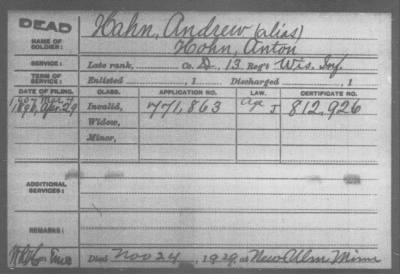 DEAD
NAME OF SOLDIER: Hahn, Andrew (alias)
Hohn, Anton
SERVICE: Late rank, Co. D, 13 Reg't Wis. Inf.
TERM OF SERVICE: Enlisted , 1 Discharged , 1
DATE OF FILING. CLASS. APPLICATION NO. LAW. CERTIFICATE NO.
1890, Apr. 29 Invalid, 771,863 J 812,926
Widow,
Minor,
ADDITIONAL SERVICES:
REMARKS:
Died Nov 24, 1929 at New Ulm, Minn